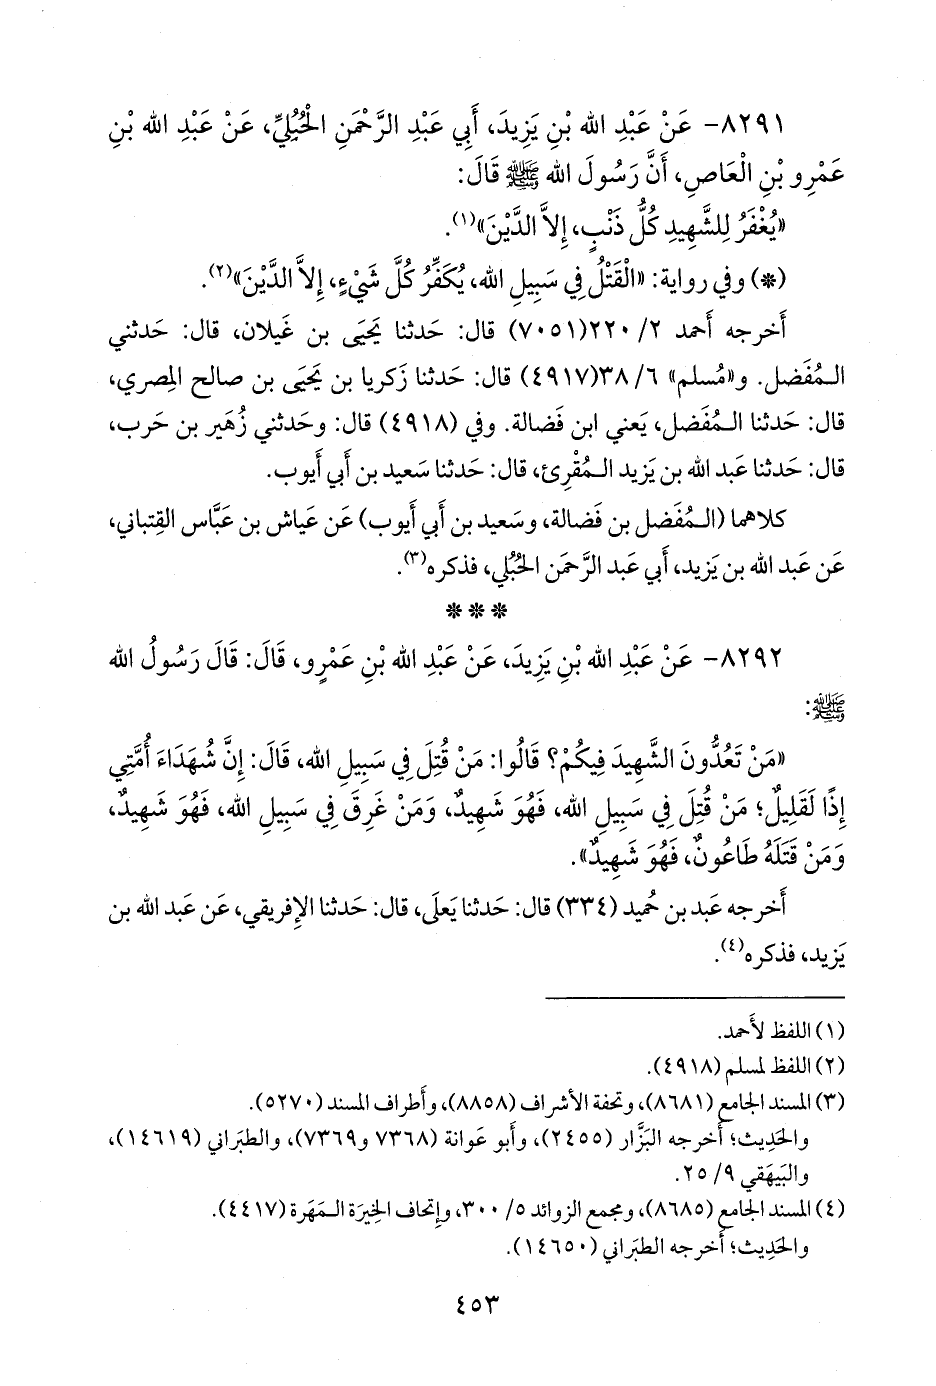 ٨٢٩١- عَنْ عَبْدِ الله بْنِ يَزِيدَ، أَبِي عَبْدِ الرَّحْمَنِ الْحُبُلِيِّ، عَنْ عَبْدِ الله بْنِ
عَمْرِو بْنِ الْعَاصِ، أَنَّ رَسُولَ الله ﷺ قَالَ:
«يُغْفَرُ لِلشَّهِيدِ كُلُّ ذَنْبٍ، إِلاَّ الدَّيْنَ»(١).
(*) وفي رواية: «الْقَتْلُ فِي سَبِيلِ الله، يُكَفِّرُ كُلَّ شَيْءٍ، إِلاَّ الدَّيْنَ»(٢).
أَخرجه أَحمد ٢/ ٢٢٠(٧٠٥١) قال: حَدثنا يَحيَى بن غَيلان، قال: حَدثني
المُفَضل. و«مُسلم» ٦/ ٣٨(٤٩١٧) قال: حَدثنا زَكريا بن يَحيَى بن صالح المِصري،
قال: حَدثنا المُفَضل، يَعني ابن فَضالة. وفي (٤٩١٨) قال: وحَدثني زُهَير بن حَرب،
قال: حَدثنا عَبد الله بن يَزيد المُقْرِئ، قال: حَدثنا سَعيد بن أَبي أَيوب.
كلاهما (المُفَضل بن فَضالة، وسَعيد بن أَبي أَيوب) عَن عَياش بن عَبَّاس القِتباني،
عَن عَبد الله بن يَزيد، أَبي عَبد الرَّحمَن الحُبُلي، فذكره(٣).
* * *
٨٢٩٢- عَنْ عَبْدِ الله بْنِ يَزِيدَ، عَنْ عَبْدِ الله بْنِ عَمْرٍو، قَالَ: قَالَ رَسُولُ الله
ﷺ:
«مَنْ تَعُدُّونَ الشَّهِيدَ فِيكُمْ؟ قَالُوا: مَنْ قُتِلَ فِي سَبِيلِ الله، قَالَ: إِنَّ شُهَدَاءَ أُمَّتِي
إِذًا لَقَلِيلٌ؛ مَنْ قُتِلَ فِي سَبِيلِ الله، فَهُوَ شَهِيدٌ، وَمَنْ غَرِقَ فِي سَبِيلِ الله، فَهُوَ شَهِيدٌ،
وَمَنْ قَتَلَهُ طَاعُونٌ، فَهُوَ شَهِيدٌ».
أَخرجه عَبد بن حُميد (٣٣٤) قال: حَدثنا يَعلَى، قال: حَدثنا الإِفريقي، عَن عَبد الله بن
يَزيد، فذكره(٤).
(١) اللفظ لأَحمد.
(٢) اللفظ لمسلم (٤٩١٨).
(٣) المسند الجامع (٨٦٨١)، وتحفة الأَشراف (٨٨٥٨)، وأَطراف المسند (٥٢٧٠).
والحَدِيث؛ أَخرجه البَزَّار (٢٤٥٥)، وأَبو عَوانة (٧٣٦٨ و٧٣٦٩)، والطبَراني (١٤٦١٩)،
والبَيهَقي ٩/ ٢٥.
(٤) المسند الجامع (٨٦٨٥)، ومجمع الزوائد ٥/ ٣٠٠، وإِتحاف الخِيرَة المَهَرة (٤٤١٧).
والحَدِيث؛ أَخرجه الطبَراني (١٤٦٥٠).
٤٥٣